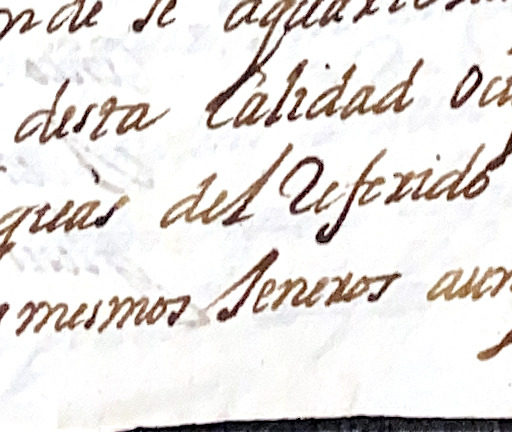 onde se aquarte
desta Calidad o
guas del Referido
mesmos Seneros aun